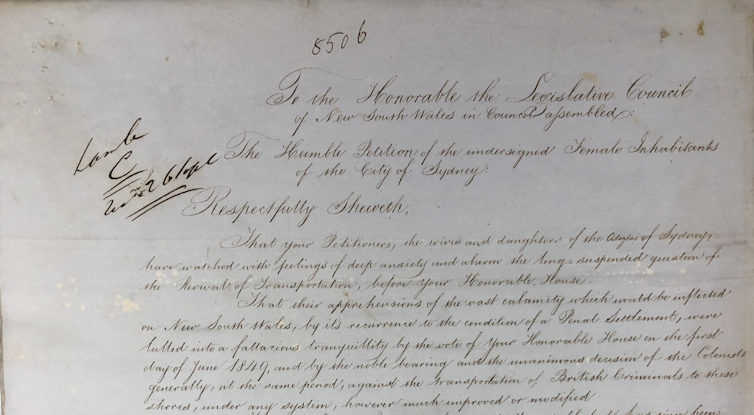 8506
To the Honorable the Legislative Council
of New South Wales in Council assembled:
The Humble Petition of the undersigned Female Inhabitants
of the City of Sydney:
Respectfully Sheweth,
That your Petitioners, the wives and daughters of the Citizens of Sydney,
have watched with feelings of deep anxiety and alarm the long-suspended question of
the Revival of Transportation, before Your Honorable House.
That their apprehensions of the vast calamity which would be inflicted
on New South Wales, by its recurrence to the condition of a Penal Settlement, were
lulled into a fallacious tranquillity by the vote of Your Honorable House on the first
day of June 1849, and by the noble bearing and the unanimous decision of the Colonists
generally, at the same period, against the transportation of British Criminals to these
shores, under any system, however much improved or modified